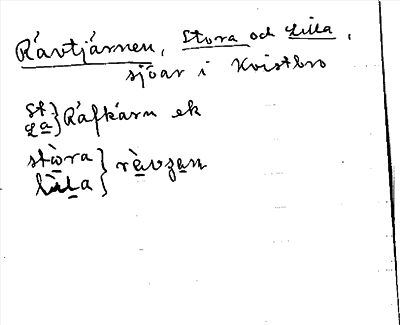 Rävtjärnen, Stora och Lilla,
sjöar i Kvistbro
St.
La } Räfkärn ek
stòra
lìla } ràvȥan